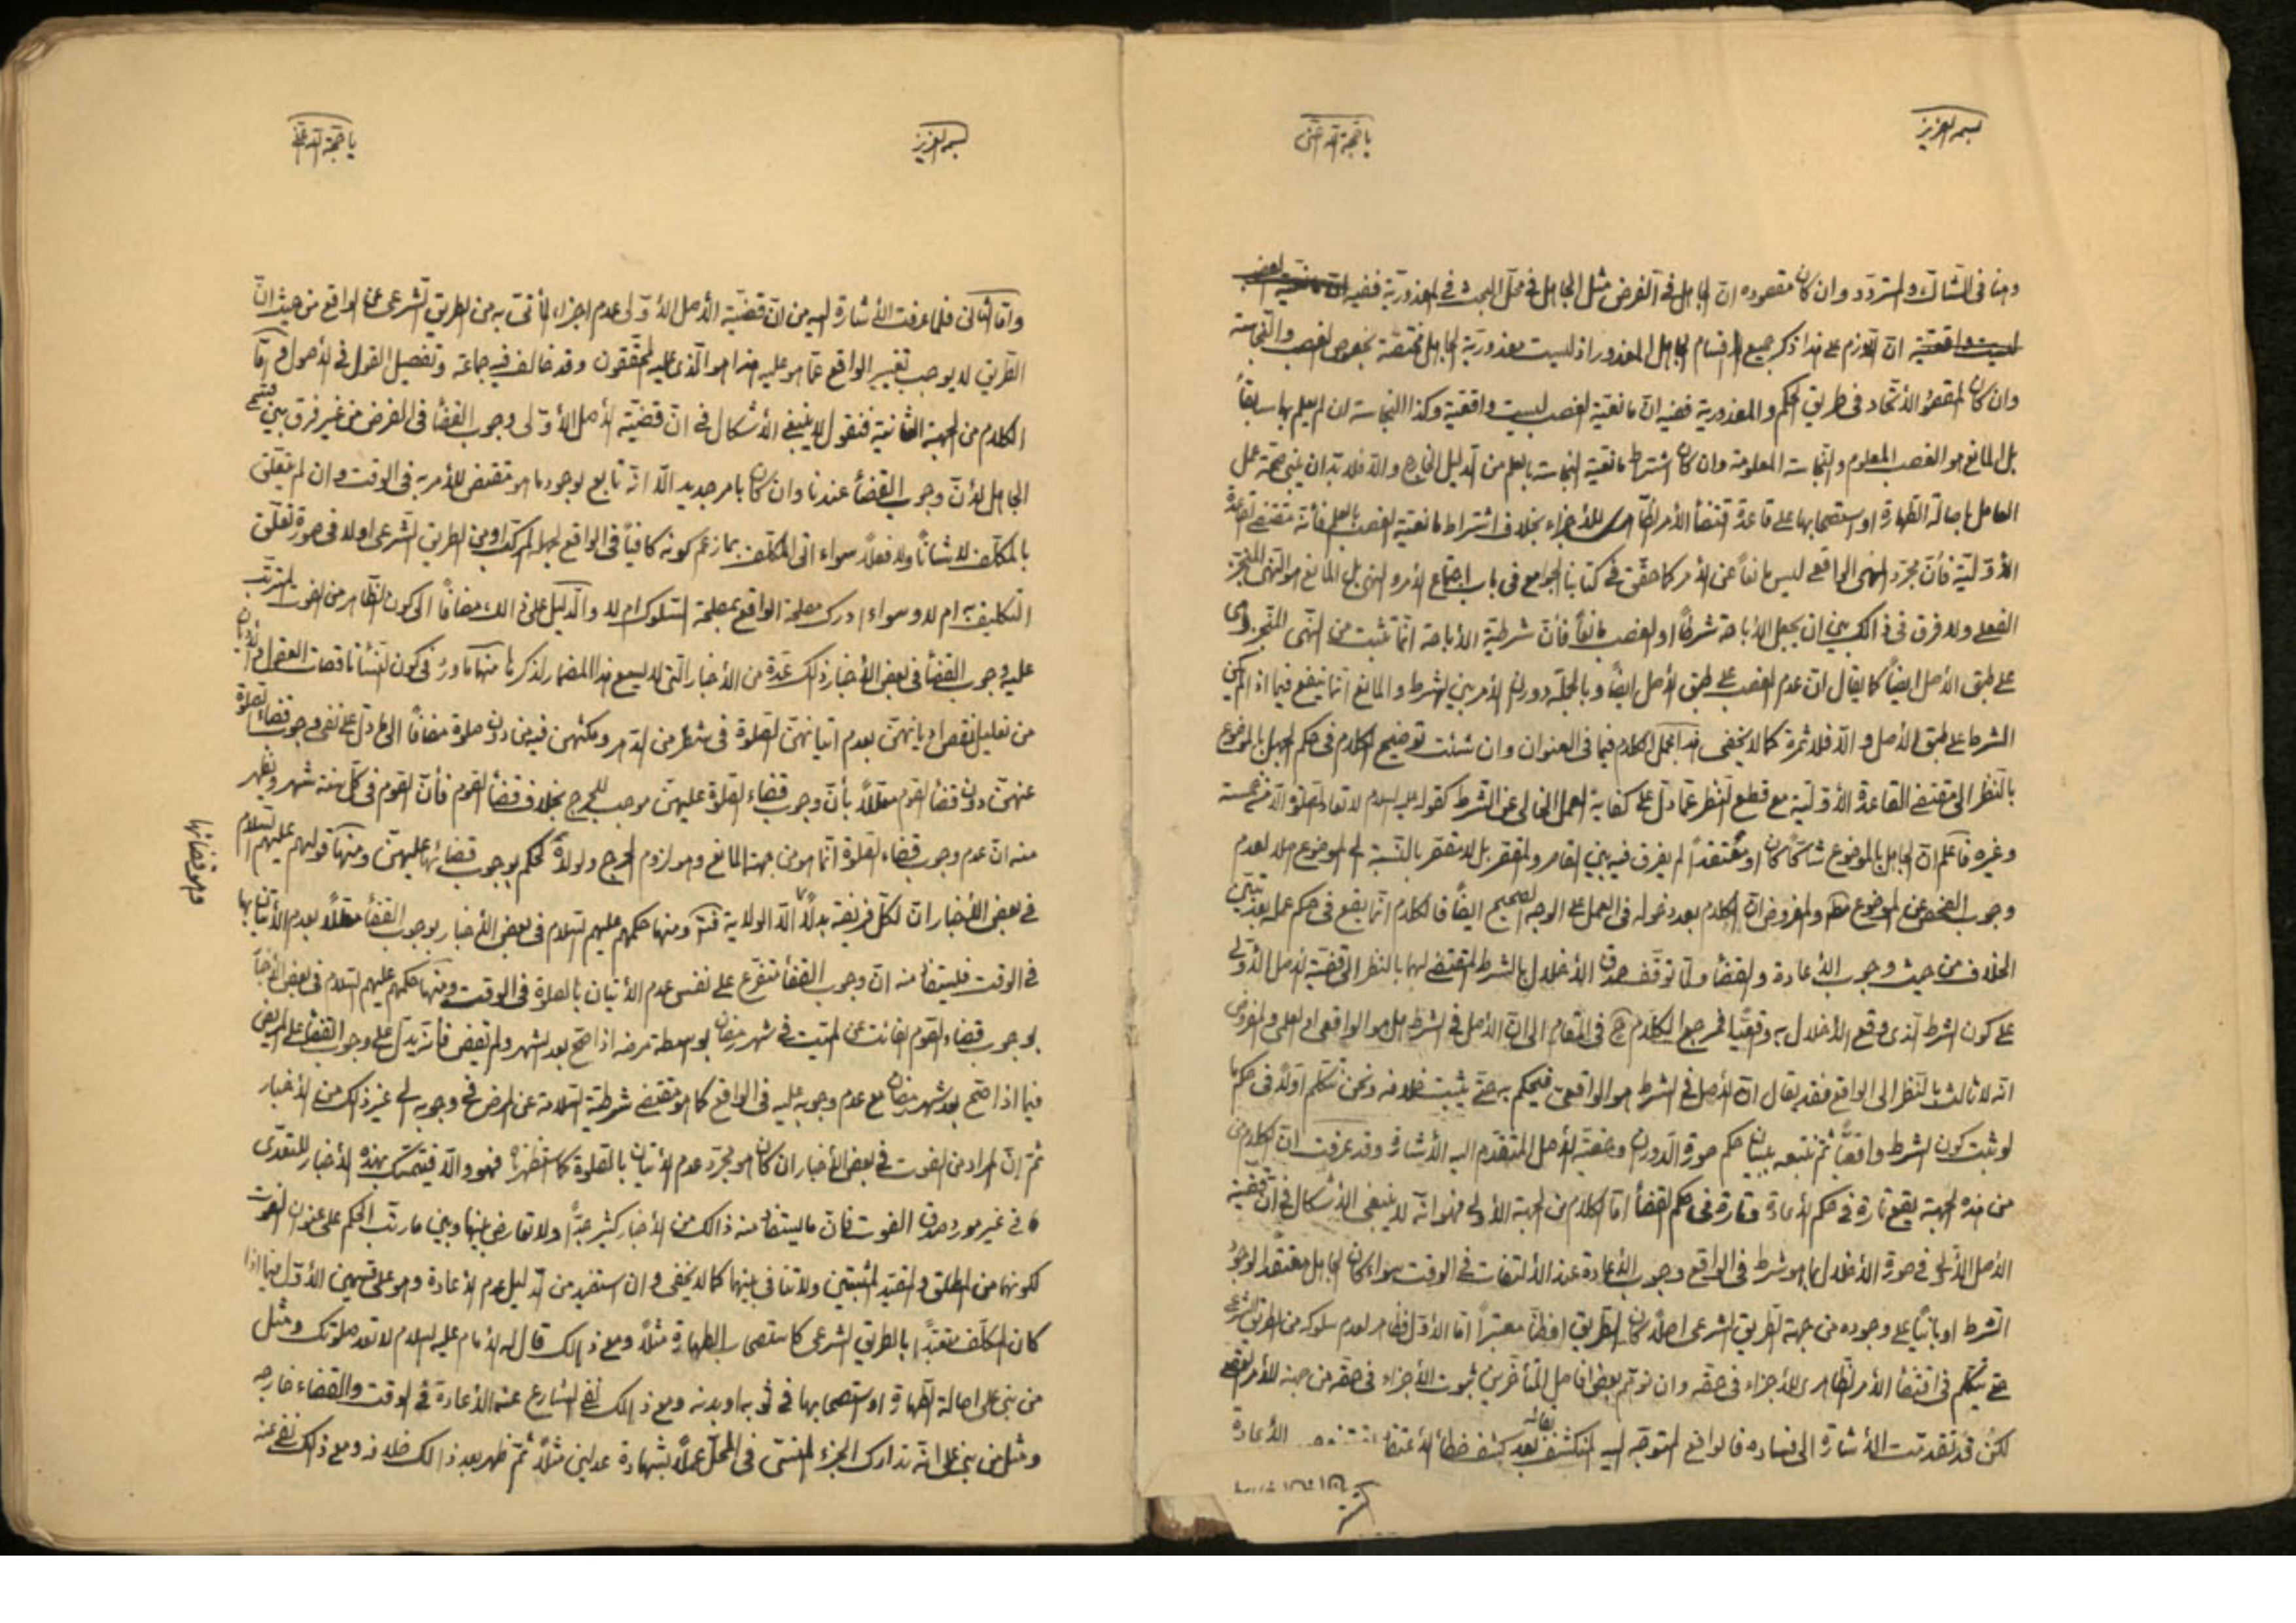 بسمه العزیز
یا حجة الله
وهنا فی الشاک والمتردد وان کان مقصوده ان الجاهل فی الفرض مثل الجاهل فی محل البحث فی المعذوریة ففیه
ان اللازم علی هذا ذکر جمیع اقسام الجاهل المعذور اذ لیست معذوریة الجاهل مختصة بخصوص الغصب والنجاسة
وان کان المقصود الاتحاد فی طریق الحکم والمعذوریة ففیه ان مانعیة الغصب لیست واقعیة وکذا النجاسة ان لم یعلم بها سابقاً
بل المانع هو الغصب المعلوم والنجاسة المعلومة وان کان اشتراط مانعیة النجاسة بالعلم من الدلیل الخارج والا فلا بد ان یبنی صحة عمل
العامل باصالة الطهارة او استصحابها علی قاعدة اقتضاء الامر الظاهری للاجزاء بخلاف اشتراط مانعیة الغصب بالعلم فانه مقتضی القاعدة
الاولیة فان مجرد النهی الواقعی لیس مانعاً عن الامر کما حقق فی کتابنا الجوامع فی باب اجتماع الامر والنهی بل المانع هو النهی المنجز
الفعلی ولا فرق فی ذالک بین ان یجعل الاباحة شرطاً او الغصب مانعاً فان شرطیة الاباحة انما تثبت من النهی المنجز
علی طبق الاصل ایضاً کما یقال ان عدم الغصب علی طبق الاصل ایضاً وبالجملة دوران الامر بین الشرط والمانع انما ینفع فیما اذا لم یکن
الشرط علی طبق الاصل والا فلا ثمرة کما لا یخفی هذا مجمل الکلام فیما فی العنوان وان شئت توضیح الکلام فی حکم الجهل بالموضوع
بالنظر الی مقتضی القاعدة الاولیة مع قطع النظر عما دل علی کفایة العمل الخالی عن الشرط کقوله علیه السلام لا تعاد الصلوة الا من خمسة
وغیره فاعلم ان الجاهل بالموضوع شاکاً کان او معتقداً لم یفرق فیه بین القاصر والمقصر بل لا مقصر بالنسبة الی الموضوع اصلا لعدم
وجوب الفحص عن الموضوع والمفروض ان الکلام بعد دخوله فی العمل علی الوجه الصحیح ایضاً فالکلام انما یقع فی حکم عمله بعد تبین
الخلاف من حیث وجوب الاعادة والقضاء ولما توقف صدق الاخلال بالشرط المقتضی لهما بالنظر الی قضیة الاصل الاولی
علی کون الشرط الذی وقع الاخلال به واقعیا فمرجع الکلام فی المقام الی ان الاصل فی الشرط هل هو الواقعی او العلمی والمفروض
انه لا ثالث بالنظر الی الواقع فقد یقال ان الاصل فی الشرط هو الواقعی فیحکم به حتی یثبت خلافه ونحن نتکلم اولاً فی حکم ما
لو ثبت کون الشرط واقعیاً ثم نتبعه ببیان حکم صورة الدوران وقضیة الاصل المتقدم الیه الاشارة وقد عرفت ان الکلام
من هذه الجهة یقع تارة فی حکم الاعادة وتارة فی حکم القضاء اما الکلام من الجهة الاولی فهو انه لا ینبغی الاشکال فی ان قضیة
الاصل الاولی فی صورة الاخلال بما هو شرط فی الواقع وجوب الاعادة عند الالتفات فی الوقت سواء کان الجاهل معتقداً لوجود
الشرط او بانیاً علی وجوده من جهة الطریق الشرعی اصلاً کان الطریق او ظناً معتبراً اما الاول فظاهر لعدم سلوکه من الطریق الشرعی
حتی یتکلم فی اقتضاء الامر الظاهری للاجزاء فی حقه وان توهم بعض افاضل المتأخرین ثبوت الاجزاء فی حقه من جهة الامر العقلی
لکن قد تقدمت الاشارة الی فساده فالواقع المتوجه الیه المنکشف بقائه بعد کشف خطأ الاعتقاد الاعادة
بسمه العزیز
یا حجة الله
واما الثانی فلما عرفت الاشارة الیه من ان قضیة الاصل الاولی عدم اجزاء المأتی به من الطریق الشرعی عن الواقع من حیث ان
الطریق لا یوجب تغییر الواقع عما هو علیه هذا هو الذی علیه المحققون وقد خالف فیه جماعة وتفصیل القول فی الاصول واما
الکلام من الجهة الثانیة فنقول لا ینبغی الاشکال فی ان قضیة الاصل الاولی وجوب القضاء فی الفرض من غیر فرق بین قسمی
الجاهل لان وجوب القضاء عندنا وان کان بامر جدید الا انه تابع لوجود ما هو مقتض للامر به فی الوقت وان لم یتعلق
بالمکلف لا شاناً ولا فعلاً سواء اتی المکلف بما زعم کونه کافیاً فی الواقع لجهل المرکب او من الطریق الشرعی اولا فی صورة تعلق
التکلیف به ام لا وسواء ادرک مصلحة الواقع بمصلحة السلوک ام لا والدلیل علی ذالک مضافاً الی کون الظاهر من الفوت المترتب
علیه وجوب القضاء فی بعض الاخبار ذلک عدة من الاخبار التی لا یسع هذا المضمار لذکرها منها ما ورد فی کون النساء ناقصات العقول والادیان
من تعلیل نقص ادیانهن بعدم اتیانهن الصلوة فی شطر من الدهر ومکثهن فیه من دون صلوة مضافاً الی ما دل علی نفی وجوب قضاء الصلوة
عنهن دون قضاء الصوم معللاً بأن وجوب قضاء الصلوة علیهن موجب للحرج بخلاف قضاء الصوم فان الصوم فی کل سنة شهر ویظهر
منه ان عدم وجوب قضاء الصلوة انما هو من جهة المانع وهو لزوم الحرج ولولاه لحکم بوجوب قضائها علیهن ومنها قولهم علیهم السلام
فی بعض الاخبار ان لکل فریضة بدلاً الا الولایة ومنها حکمهم علیهم السلام فی بعض الاخبار بوجوب القضاء معللاً بعدم الاتیان بها
وهو قضائها
فی الوقت فلیستفاد منه ان وجوب القضاء متفرع علی نفس عدم الاتیان بالصلوة فی الوقت ومنها حکمهم علیهم السلام فی بعض الاخبار
بوجوب قضاء الصوم الفائت عن المیت فی شهر رمضان بواسطة مرضه اذا صح بعد الشهر ولم یقض فانه یدل علی وجوب القضاء علی المریض
فیما اذا صح بعد شهر رمضان مع عدم وجوبه علیه فی الواقع کما هو مقتضی شرطیة السلامة عن المرض فی وجوبه الی غیر ذلک من الاخبار
ثم ان المراد من الفوت فی بعض الاخبار ان کان هو مجرد عدم الاتیان بالصلوة کما استظهرناه فهو والا فیتمسک بهذه الاخبار للتعدی
فی غیر مورد صدق الفوت فان ما یستفاد منه ذالک من الاخبار کثیر جداً ولا تعارض بینها وبین ما رتب الحکم علی عنوان الفوت
لکونهما من المطلق والمقید المثبتین ولا تنافی بینهما کما لا یخفی وان استفید من الدلیل عدم الاعادة وهو علی قسمین الاول فیما اذا
کان المکلف متعبداً بالطریق الشرعی کاستصحاب الطهارة مثلاً ومع ذالک قال له الامام علیه السلام لا تعد صلوتک ومثل
من بنی علی اصالة الطهارة او استصحابها فی ثوبه او بدنه ومع ذالک نفی الشارع عنه الاعادة فی الوقت والقضاء خارجه
ومثل من بنی علی انه تدارک الجزء المنسی فی المحل عملاً بشهادة عدلین مثلاً ثم ظهر بعد ذالک خلافه ومع ذالک نفی عنه